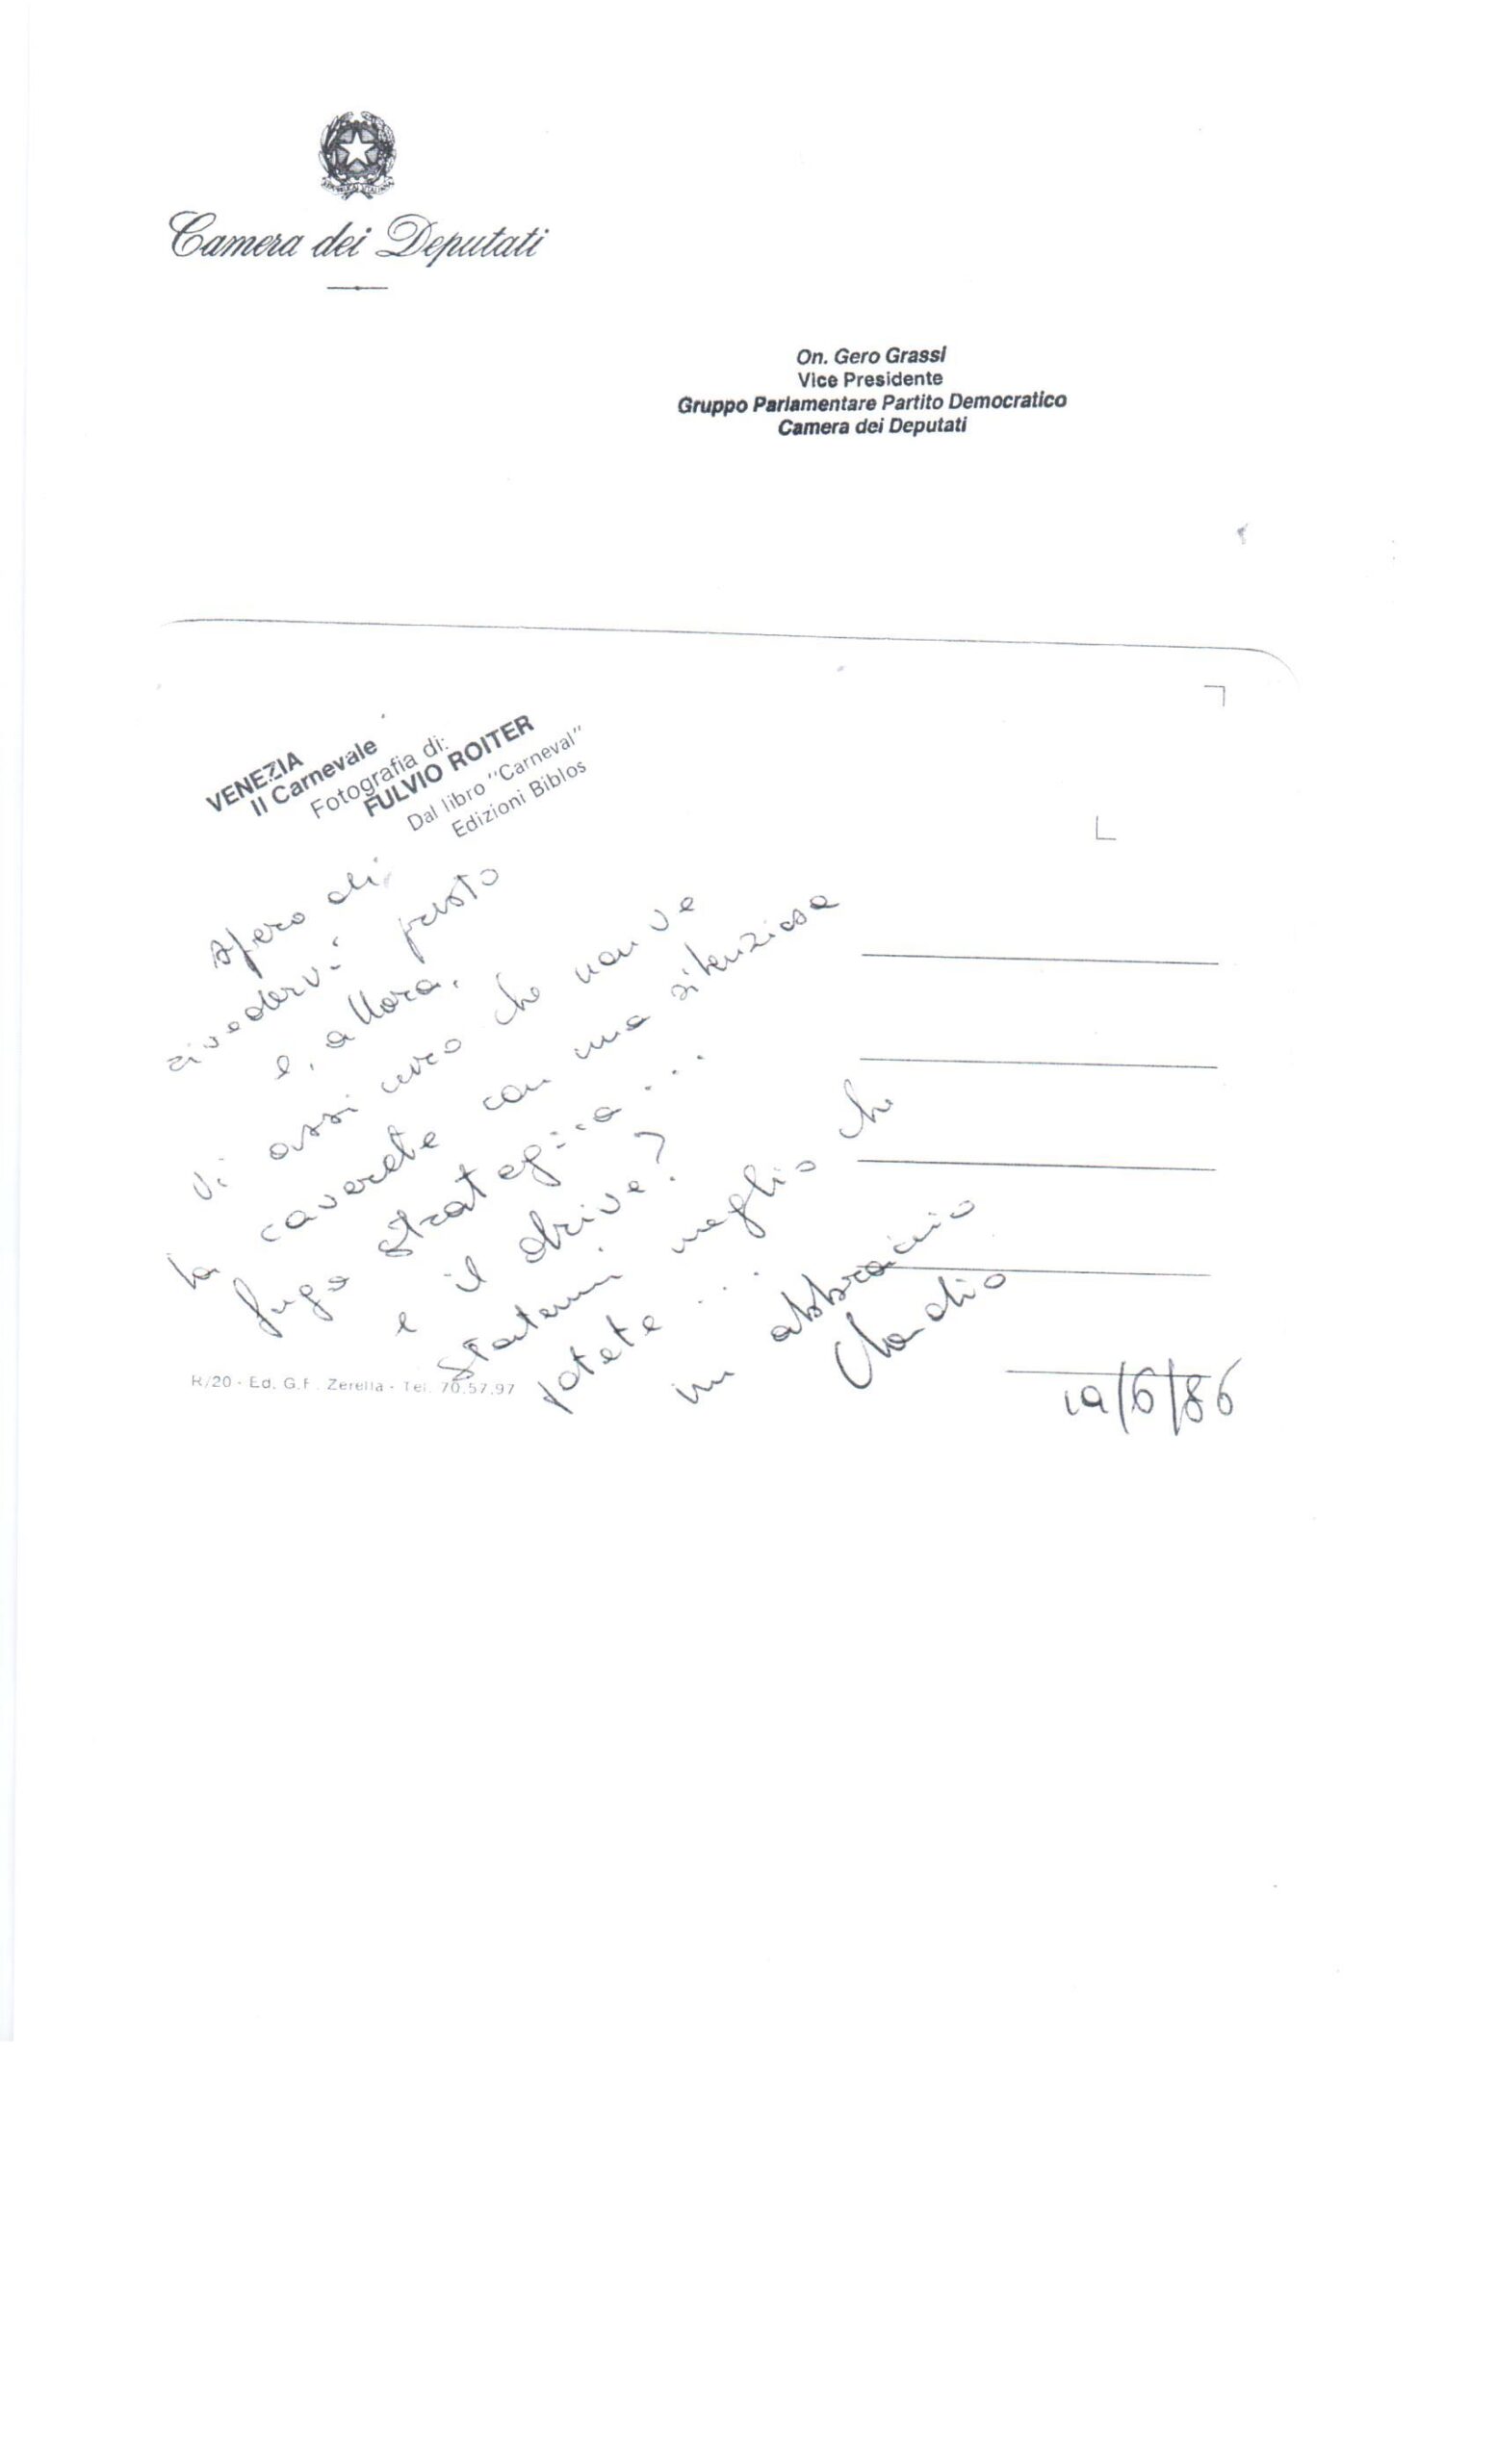 Camera dei Deputati
On. Gero Grassi
Vice Presidente
Gruppo Parlamentare Partito Democratico
Camera dei Deputati
VENEZIA
Il Carnevale
Fotografia di:
FULVIO ROITER
Dal libro "Carneval"
Edizioni Biblos
spero di
rivedervi presto
e, allora,
vi assicuro che non ve
la caverete con una silenziosa
fuga strategica...
e il drive?
statemi meglio che
potete...
un abbraccio
Claudio
R/20 - Ed. G.F. Zerella - Tel. 70.57.97
19/6/86